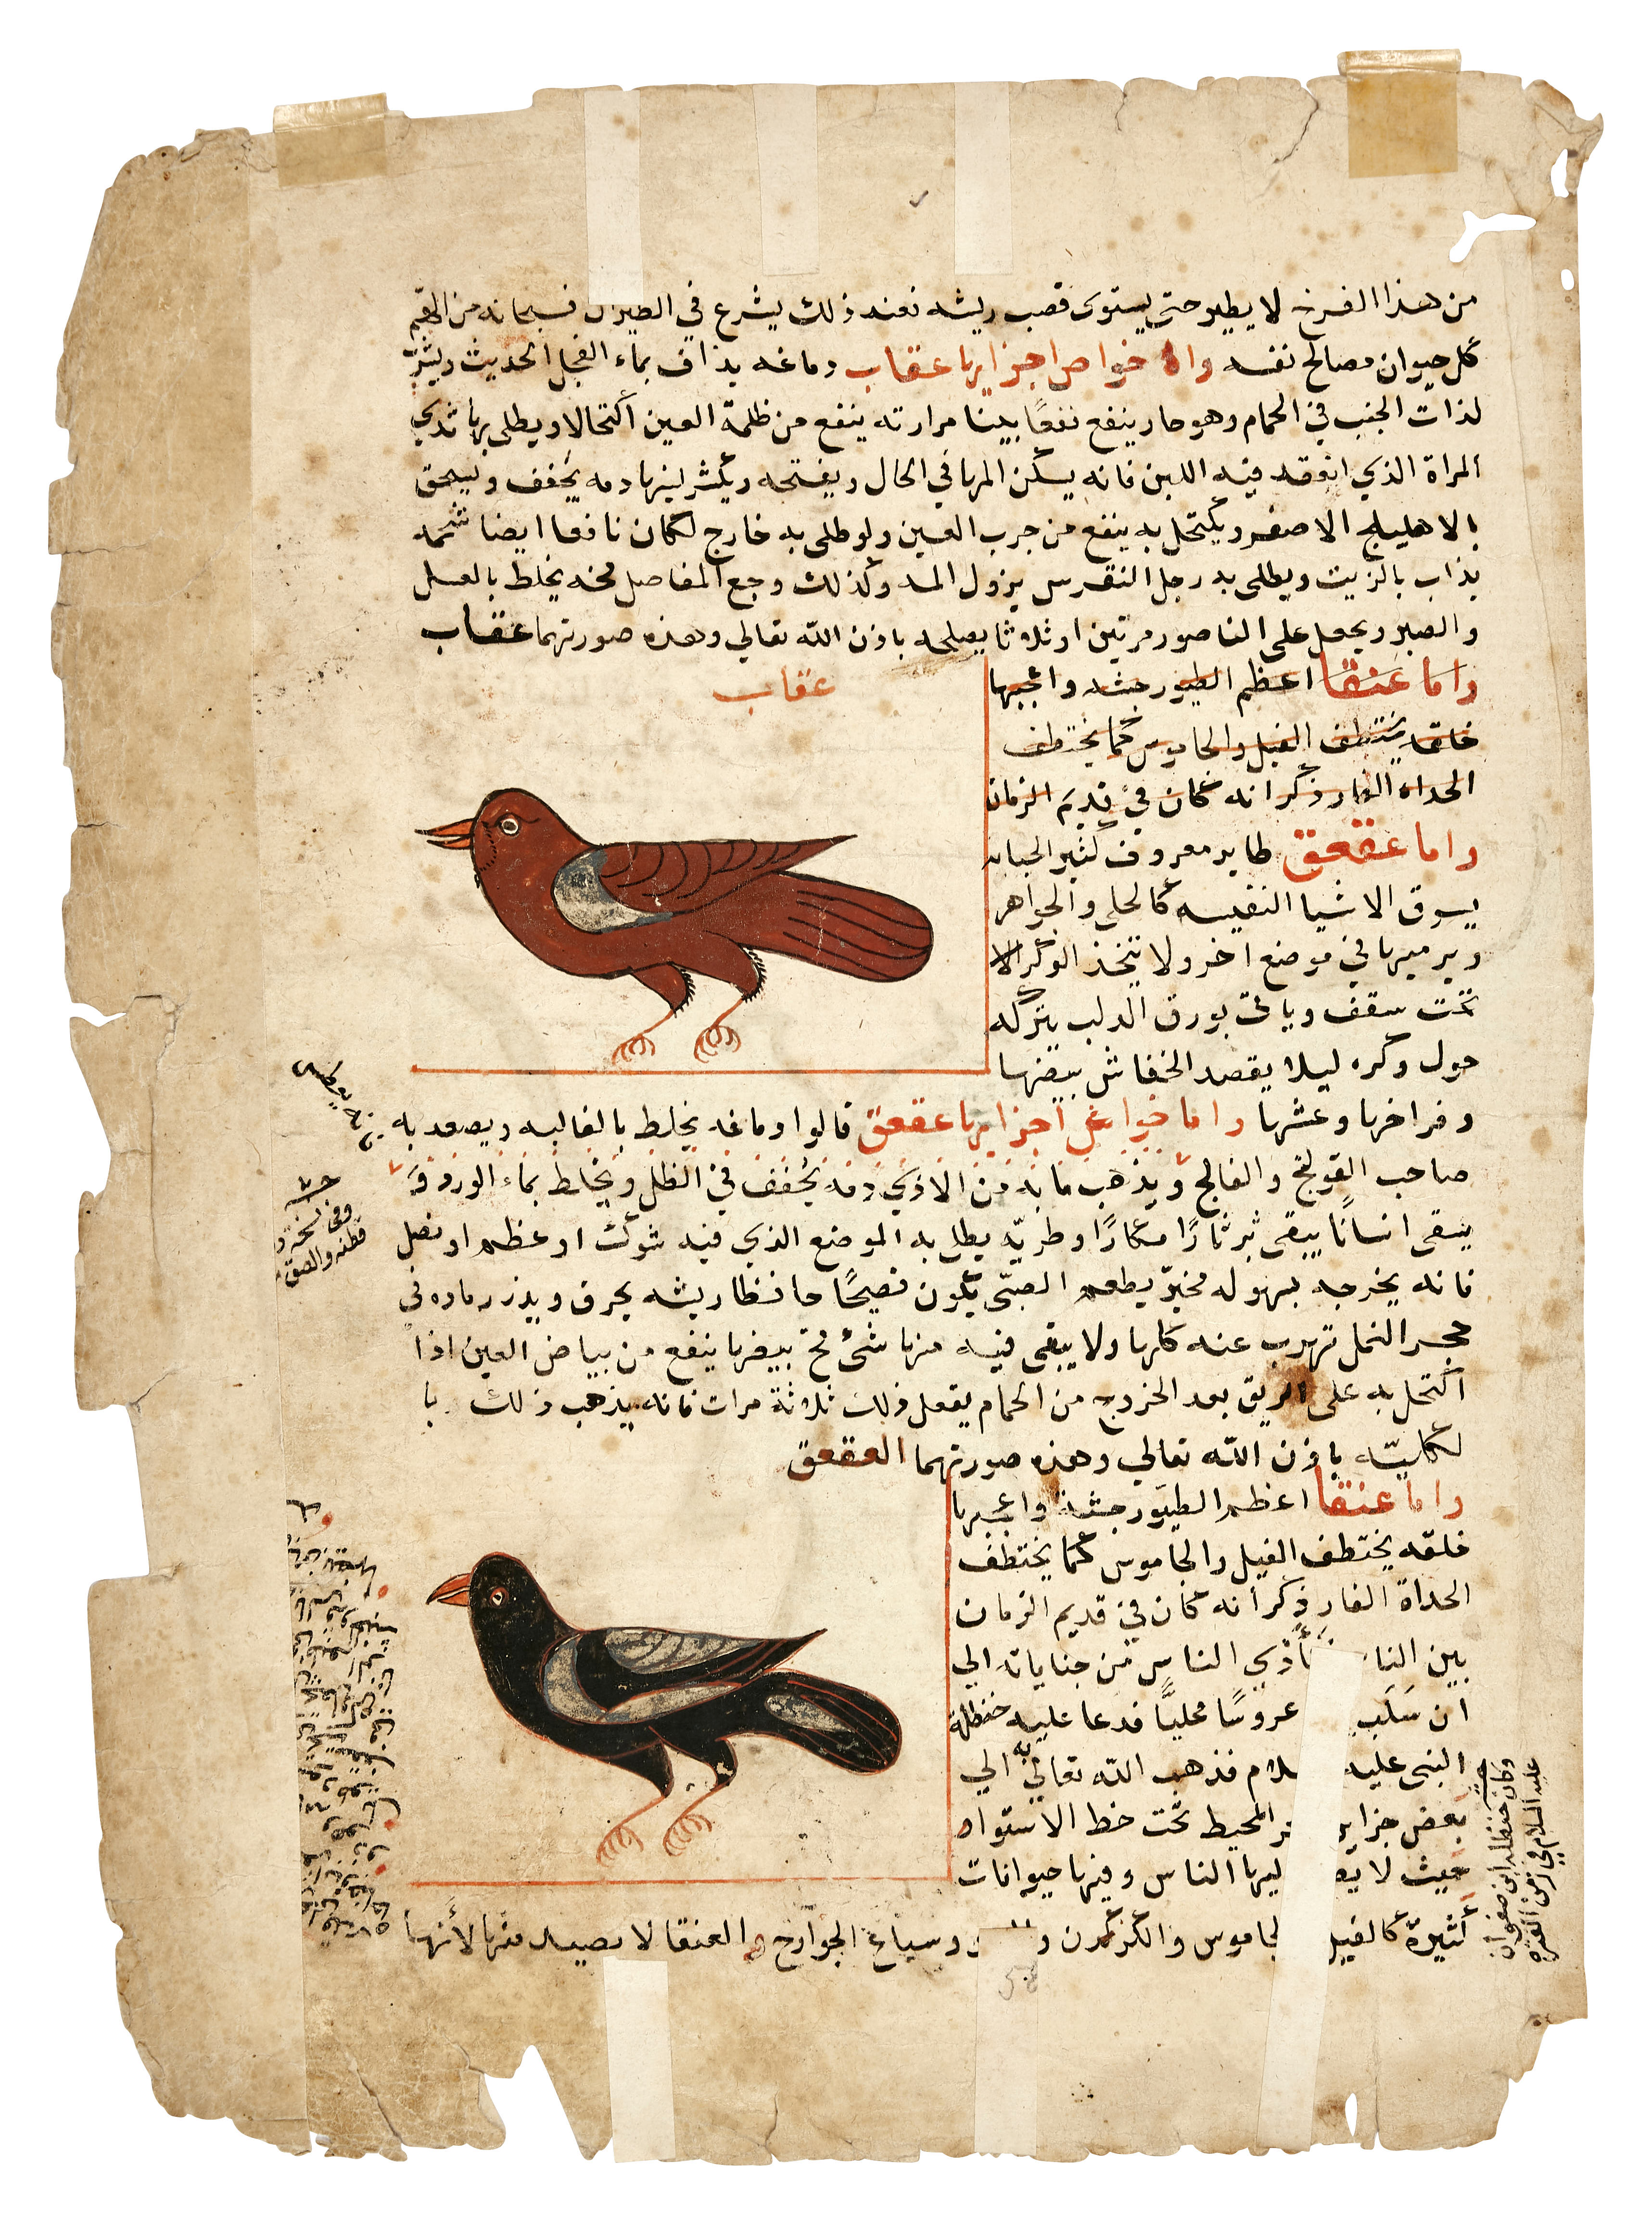 من هذا الفرخ لا يطير حتى يستوى قصب ريشه فعند ذلك يشرع في الطيران فسبحانه من الهم
كل حيوان مصالح نفسه واما خواص اجزايها عقاب دماغه يذاف بماء الفجل الحديث ويشرب
لذات الجنب في الحمام وهو حار ينفع نفعًا بينا مرارته ينفع من ظلمة العين اكتحالا ويطلى بها ثدي
المراة الذي انعقد فيه اللبن فانه يسكن المها في الحال ويفتحه ويكثر لبنها دمه يجفف ويسحق
بالاهليلج الاصفر ويكتحل به ينفع من جرب العين ولو طلى به خارج لكان نافعا ايضا شحمه
يذاب بالزيت ويطلى به رجل النقرس يزول المه وكذلك وجع المفاصل مخه يخلط بالعسل
والصبر ويجعل على الناصور مرتين او ثلاثا يصلحه باذن الله تعالي وهذه صورتهما عقاب
عقاب
واما عنقا اعظم الطيور جثه واعجبها
خلقه يختطف الفيل والجاموس كما يختطف
الحداه الفار ذكر انه كان في قديم الزمان
واما عقعق طاير معروف كثير الخيانه
يسرق الاشيا النفيسه كالحلى والجواهر
ويرميها في موضع اخر ولا يتخذ الوكر الا
تحت سقف وياتى بورق الدلب يتركه
حول وكره ليلا يقصد الخفاش بيضها
وفراخها وعشها واما خواص اجزايها عقعق قالوا دماغه يخلط بالغاليه ويصعد به
صاحب القولنج والفالج ويذهب ما به من الاذي دمه يجفف في الظل ويخلط بماء الورد و
يسقى انسانًا يبقى ثرثارًا مكارًا وطريّه يطلى به الموضع الذي فيه شوكة او عظم او نصل
فانه يخرجه بسهوله مخه يطعم الصبّى يكون فصيحًا حافظا ريشه يحرق ويذر رماده في
حجر النمل تهرب عنه كلها ولا يبقى فيه منها شئ مح بيضها ينفع من بياض العين اذا
اكتحل به على الريق بعد الخروج من الحمام يفعل ذلك ثلاثة مرات فانه يذهب ذلك با
لكليّه باذن الله تعالي وهذه صورتهما العقعق
واما عنقا اعظم الطيور جثة واعجبها
خلقه يختطف الفيل والجاموس كما يختطف
الحداة الفار ذكر أنه كان في قديم الزمان
بين النا تأذي الناس من جناياته الي
ان سَلَبَ عروسًا محليًّا فدعا عليه حنظلة
النبى عليه لام فذهب الله تعالي به الي
بعض جزاير ر المحيط تحت خط الاستواء
حيث لا يص ليها الناس وفيها حيوانات
كثيرة كالفيل لجاموس والكركدن و وسباع الجوارح و العنقا لا يصيد منها لأنها
وكان حنظله ابن صفوان
عليه السلام في زمن الفتره
وفي نسخة
قطنه والصق